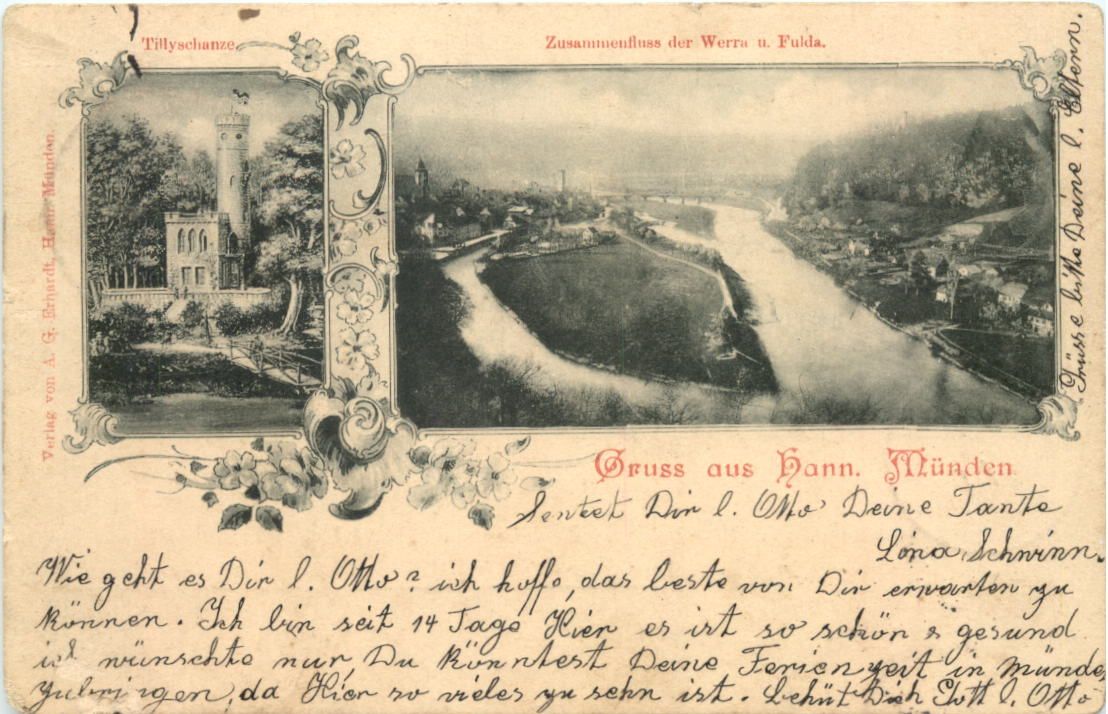 Tillyschanze.
Zusammenfluss der Werra u. Fulda.
Verlag von A. G. Erhardt, Hann. Münden.
Gruss aus Hann. Münden
Sentet Dir l. Otto Deine Tante
Lina Schwinn.
Wie geht es Dir l. Otto? ich hoffe, das beste von Dir erwarten zu
können. Ich bin seit 14 Tage Hier es ist so schön & gesund
ich wünschte nur Du könntest Deine Ferienzeit in Münde
zubringen, da Hier so vieles zu sehn ist. behüt Dich Gott l. Otto
Grüsse bitte Deine l. Eltern.